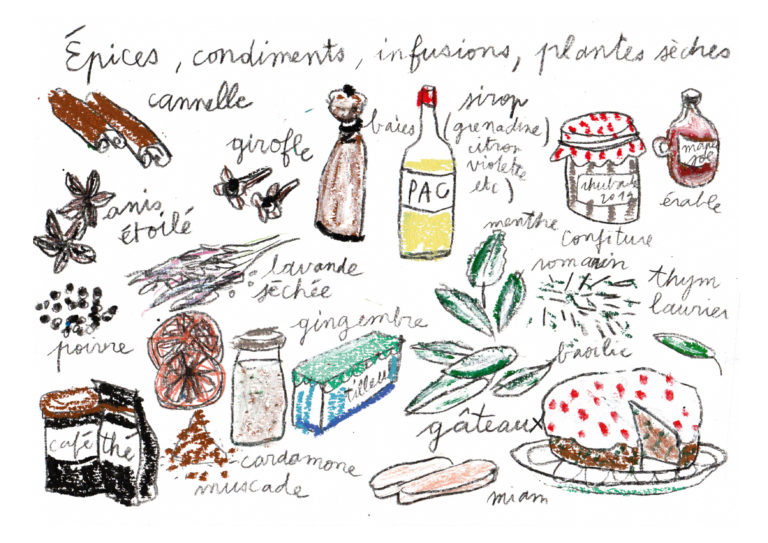 Épices, condiments, infusions, plantes sèches
cannelle
girofle
baies
sirop
(grenadine)
citron
violette
etc)
anis
étoilé
PAC
rhubarbe
2019
érable
confiture
menthe
romarin
thym
laurier
lavande
séchée
poivre
gingembre
tilleul
basilic
café
thé
gâteaux
cardamone
muscade
miam